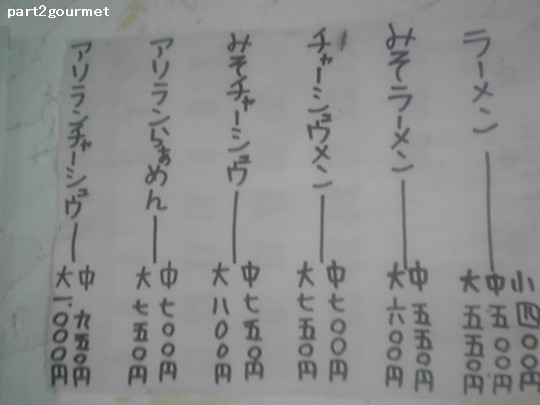 part2gourmet
ラーメン
小 四〇〇円
中 五〇〇円
大 五五〇円
みそラーメン
中 五五〇円
大 六〇〇円
チャーシュウメン
中 七〇〇円
大 七五〇円
みそチャーシュウ
中 七五〇円
大 八〇〇円
アリランらぁめん
中 七〇〇円
大 七五〇円
アリランチャーシュウ
中 九五〇円
大 一.〇〇〇円